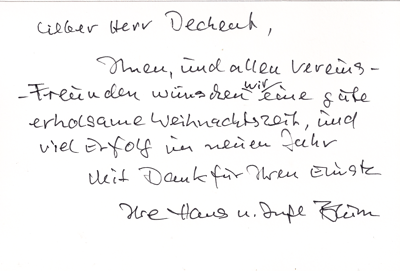 Lieber Herr Dechent,
Ihnen, und allen Vereins-
-Freunden wünschen wir eine gute
erholsame Weihnachtszeit, und
viel Erfolg im neuen Jahr
Mit Dank für Ihren Einsatz
Ihre Hans u. Inge Blüm